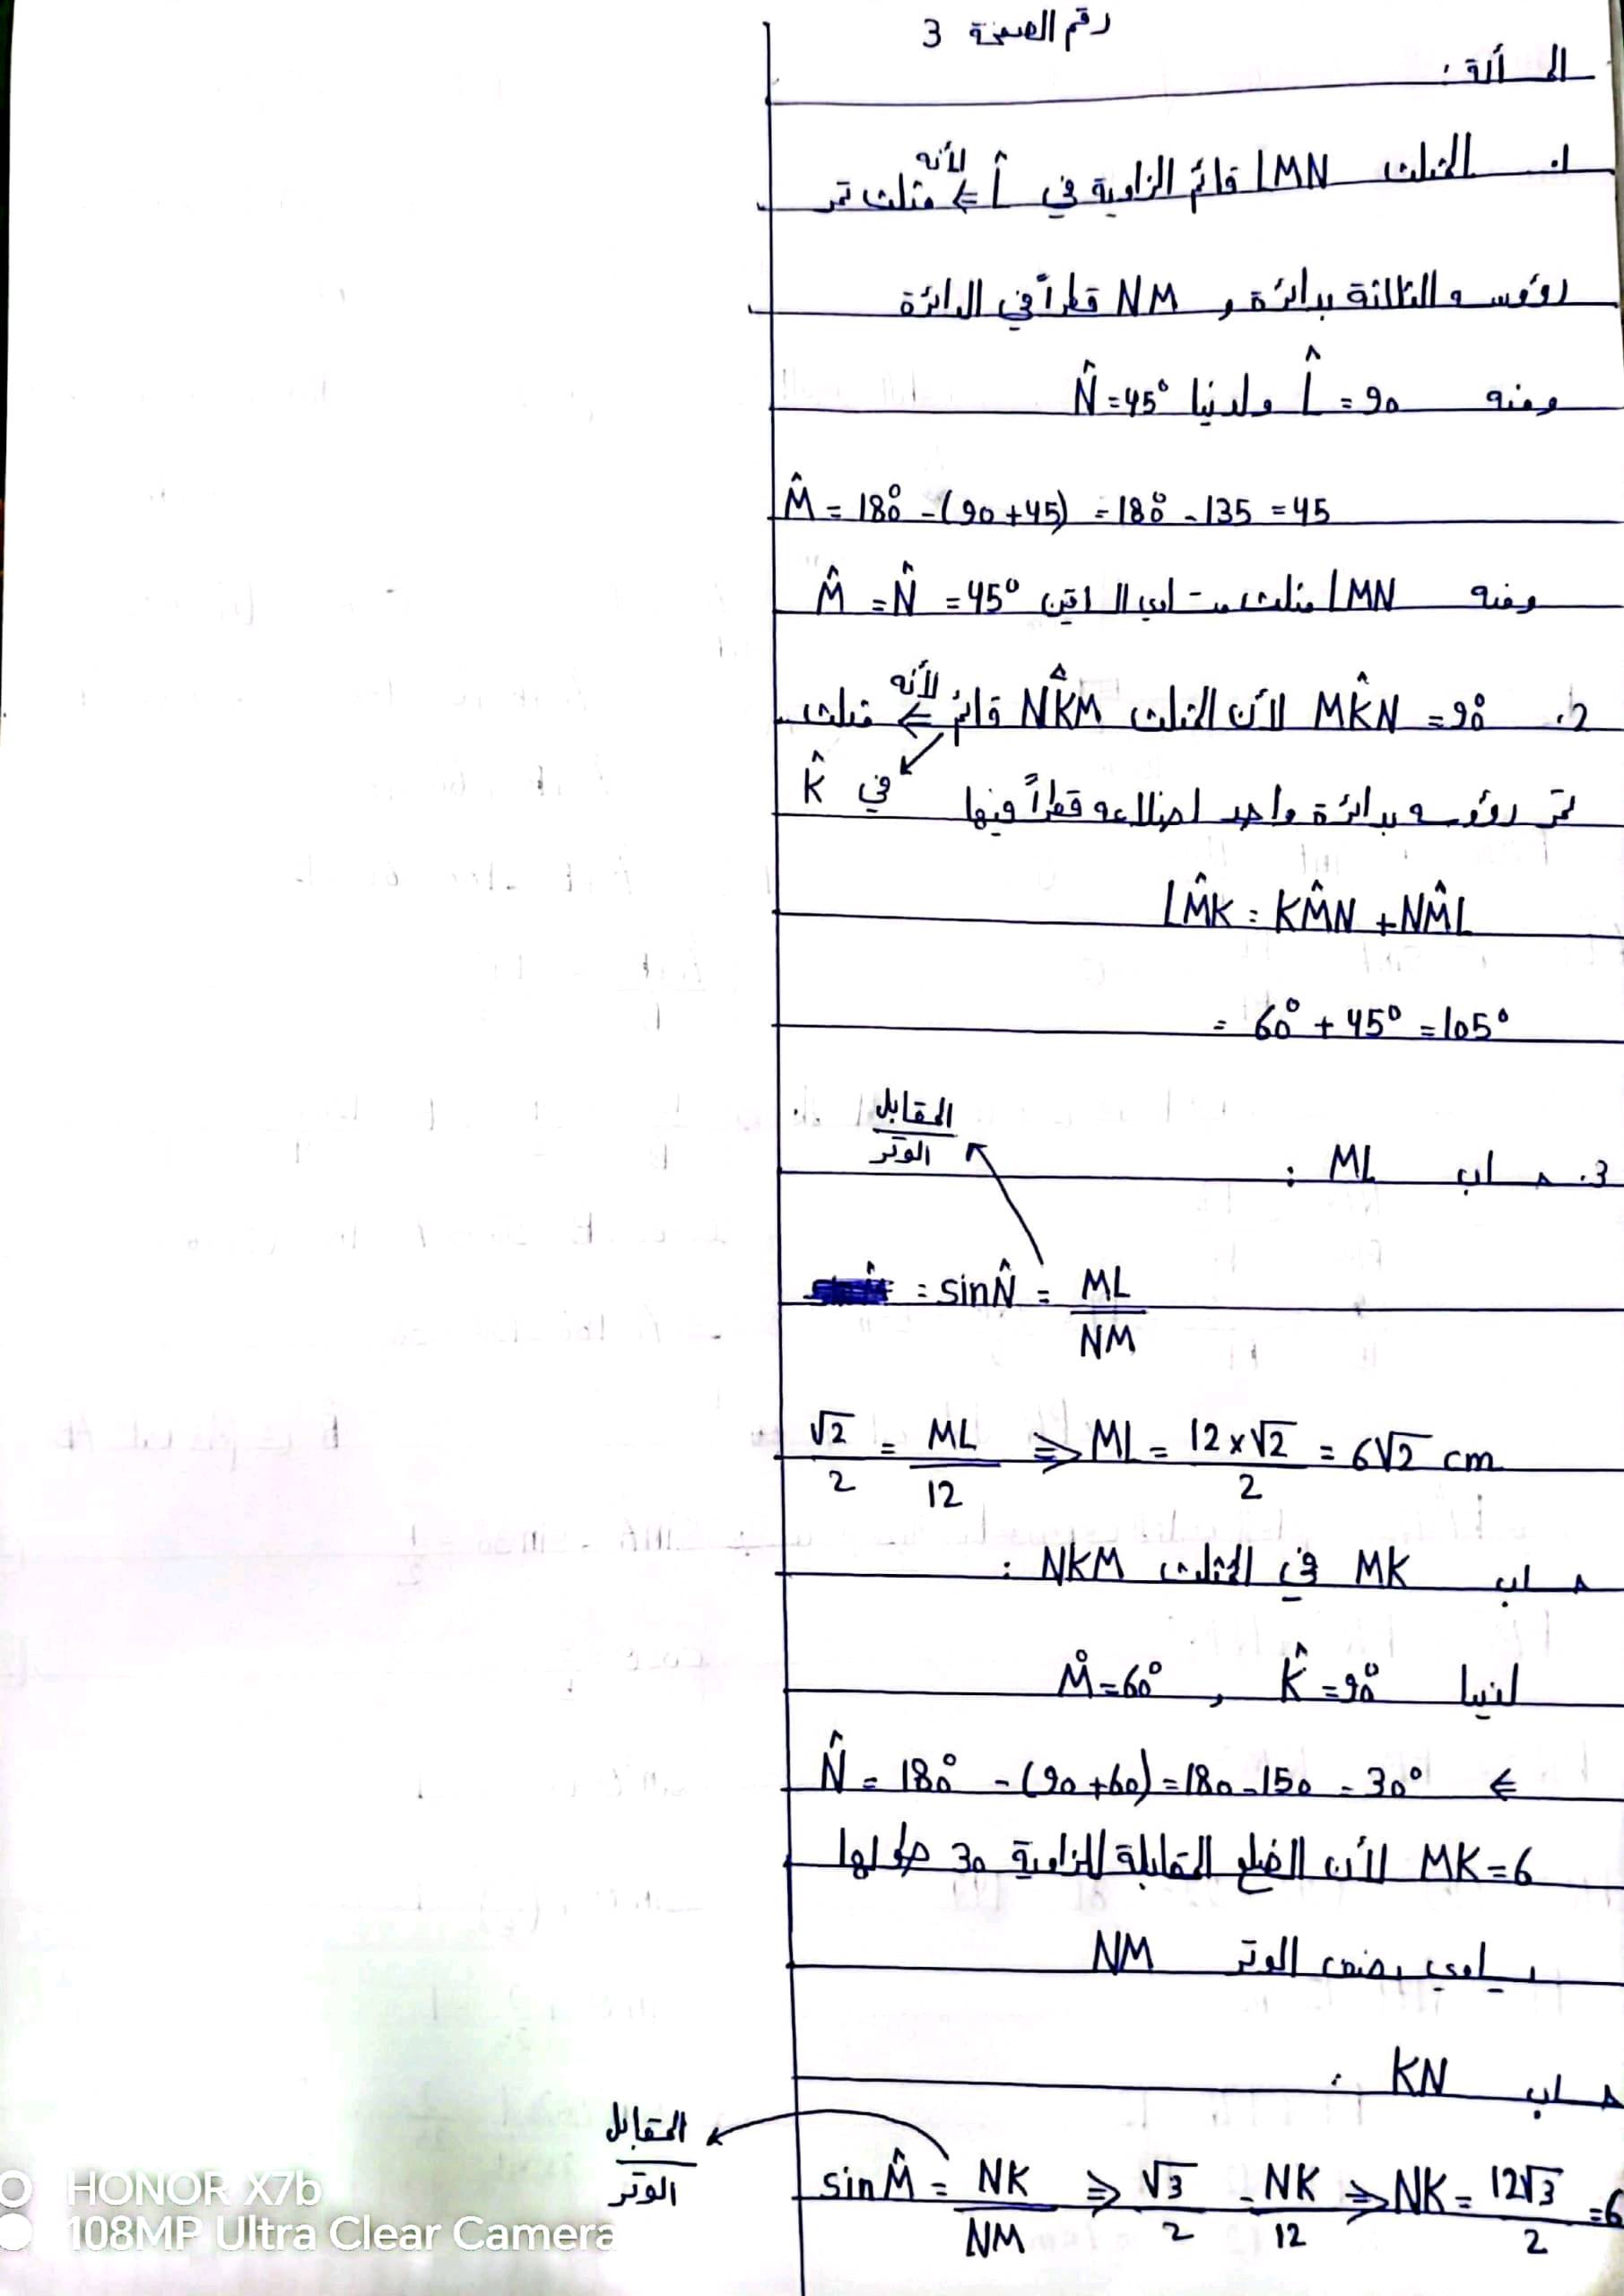 رقم الصفحة 3
المسألة :
1. المثلث LMN قائم الزاوية في L̂ ⇐ لأنه مثلث تمر
رؤوسه الثلاثة بدائرة و NM قطراً في الدائرة
ومنه L̂ = 90 ولدينا N̂ = 45°
M̂ = 180° - (90 + 45) = 180° - 135 = 45
ومنه LMN مثلث متساوي الساقين M̂ = N̂ = 45°
2. MK̂N = 90° لأن المثلث NK̂M قائم ⇐ لأنه مثلث
في K̂
تمر رؤوسه بدائرة واحد اضلاعه قطراً فيها
LM̂K = KM̂N + NM̂L
= 60° + 45° = 105°
المقابل
الوتر
3. حساب ML :
= sin N̂ = ML / NM
√2 / 2 = ML / 12 ⇒ ML = 12 × √2 / 2 = 6√2 cm
حساب MK في المثلث NKM :
لدينا K̂ = 90° , M̊ = 60°
⇐ N̂ = 180° - (90 + 60) = 180 - 150 = 30°
MK = 6 لأن الضلع المقابلة للزاوية 30 طولها
يساوي نصف الوتر NM
حساب KN :
المقابل
الوتر
sin M̂ = NK / NM ⇒ √3 / 2 = NK / 12 ⇒ NK = 12√3 / 2 = 6
HONOR X7b
108MP Ultra Clear Camera